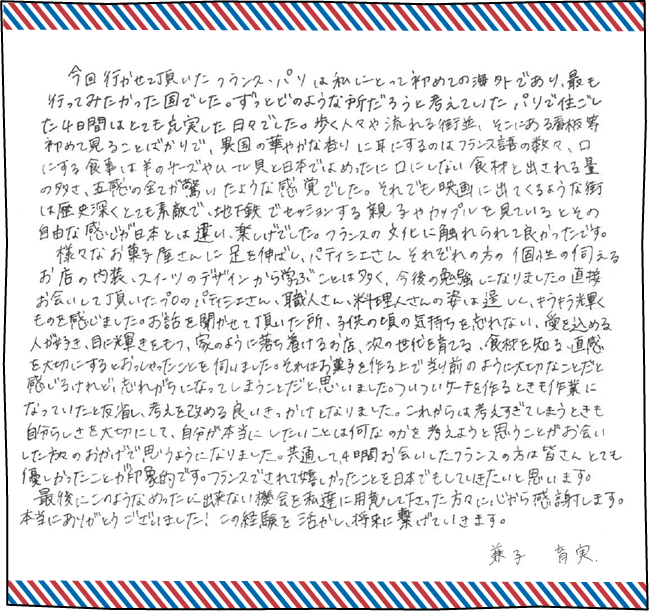 今回行かせて頂いたフランス・パリは私にとって初めての海外であり、最も
行ってみたかった国でした。ずっとどのような所だろうと考えていたパリで過ごし
た4日間はとても充実した日々でした。歩く人々や流れる街並、そこにある看板等
初めて見ることばかりで、異国の華やかな香りに耳にするのはフランス語の数々、口
にする食事は羊のチーズやムール貝と日本ではめったに口にしない食材と出される量
の多さ、五感の全てが驚いたような感覚でした。それでも映画に出てくるような街
は歴史深くとても素敵で、地下鉄でセッションする親子やカップルを見ているとその
自由な感じが日本とは違い、楽しげでした。フランスの文化に触れられて良かったです。
様々なお菓子屋さんに足を伸ばし、パティシエさんそれぞれの方の個性の伺える
お店の内装、スイーツのデザインから学ぶことは多く、今後の勉強になりました。直接
お会いして頂いたプロのパティシエさん、職人さん、料理人さんの姿は逞しく、キラキラ輝く
ものを感じました。お話を聞かせて頂いた所、子供の頃の気持ちを忘れない、愛を込める
人が好き、目に輝きをもつ、家のように落ち着けるお店、次の世代を育てる、食材を知る、直感
を大切にするとおっしゃったことを伺いました。それはお菓子を作る上で当り前のように大切なことだと
感じるけれど、忘れがちになってしまうことだと思いました。ついついケーキを作るときも作業に
なっていたと反省し、考えを改める良いきっかけとなりました。これからは考えすぎてしまうときも
自分らしさを大切にして、自分が本当にしたいことは何なのかを考えようと思うことがお会い
した方々のおかげで思うようになりました。共通して、4日間お会いしたフランスの方は皆さんとても
優しかったことが印象的です。フランスでされて嬉しかったことを日本でもしていきたいと思います。
最後にこのようなめったに出来ない機会を私達に用意して下さった方々に心から感謝します。
本当にありがとうございました!この経験を活かし、将来に繋げていきます。
兼子 育実.